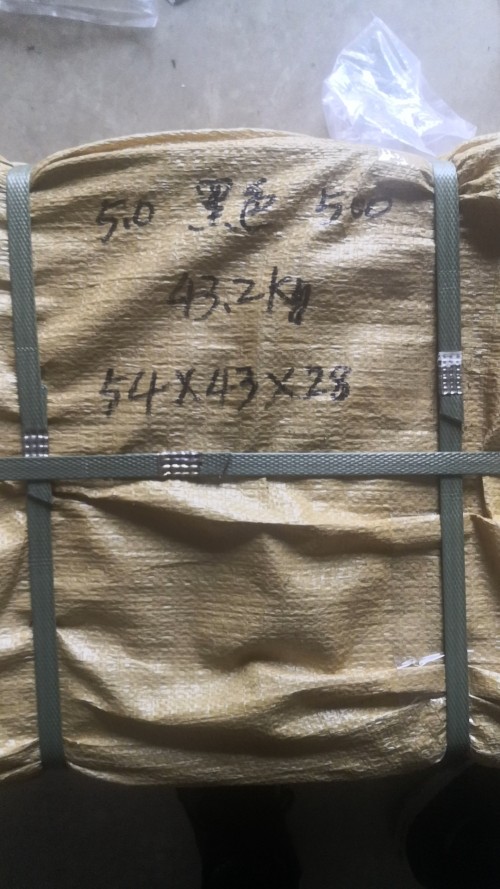 5.0 黑色 500
43.2kg
54×43×28